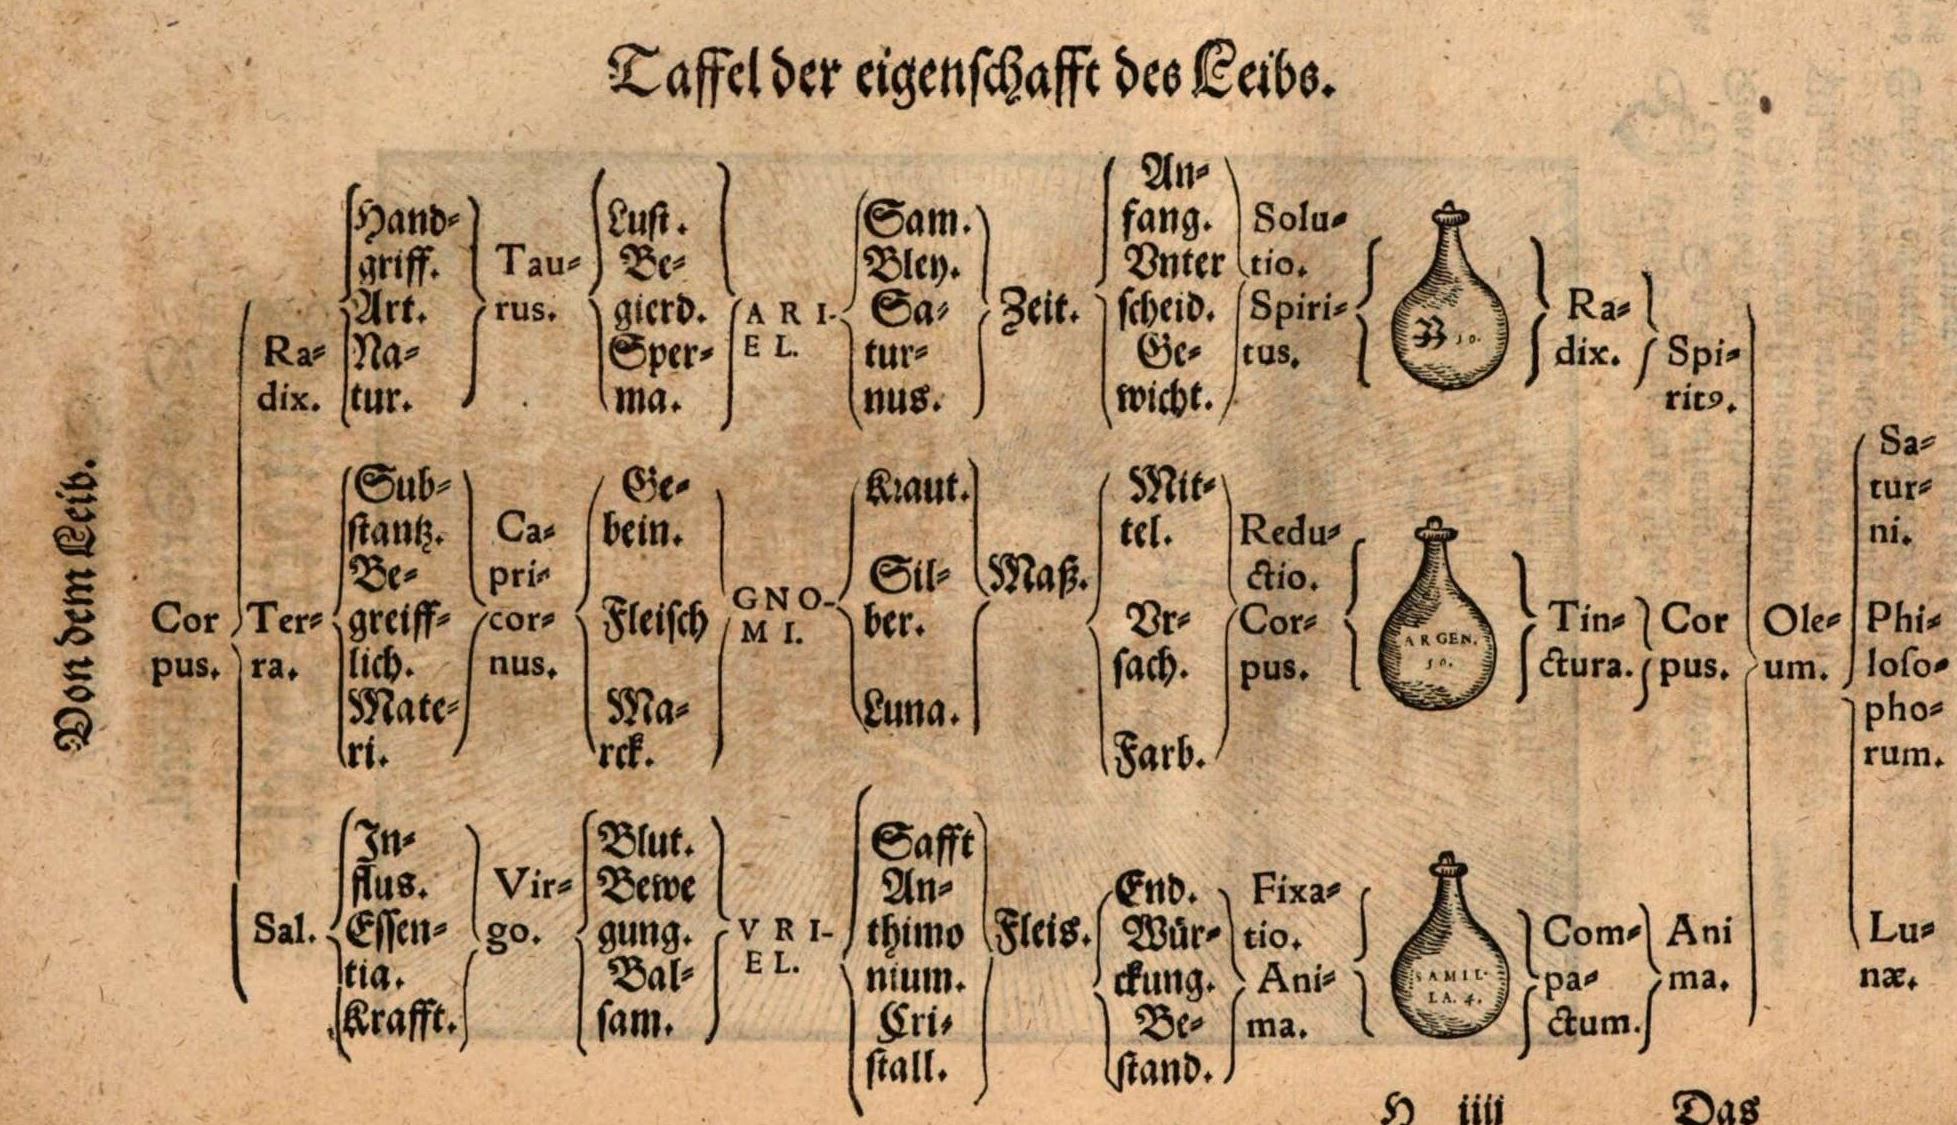 Taffel der eigenſchafft des Leibs.
Von dem Leib.
Cor
pus.
Ra⸗
dix.
Hand⸗
griff.
Art.
Na⸗
tur.
Tau⸗
rus.
Luſt.
Be⸗
gierd.
Sper⸗
ma.
ARI-
EL.
Sam.
Bley.
Sa⸗
tur⸗
nus.
Zeit.
An⸗
fang.
Vnter
ſcheid.
Ge⸗
wicht.
Solu⸗
tio.
Spiri⸗
tus.
50.
Ra⸗
dix.
Spi⸗
ritꝰ.
Ter⸗
ra.
Sub⸗
ſtantz.
Be⸗
greiff⸗
lich.
Mate⸗
ri.
Ca⸗
pri⸗
cor⸗
nus.
Ge⸗
bein.
Fleiſch
Ma⸗
rck.
GNO-
MI.
Kraut.
Sil⸗
ber.
Luna.
Maß.
Mit⸗
tel.
Vr⸗
ſach.
Farb.
Redu⸗
ctio.
Cor⸗
pus.
ARGEN.
50.
Tin⸗
ctura.
Cor
pus.
Sal.
In⸗
flus.
Eſſen⸗
tia.
Krafft.
Vir⸗
go.
Blut.
Bewe
gung.
Bal⸗
ſam.
VRI-
EL.
Safft
An⸗
thimo
nium.
Cri⸗
ſtall.
Fleis.
End.
Wür⸗
ckung.
Be⸗
ſtand.
Fixa⸗
tio.
Ani⸗
ma.
SAMIL-
LA. 4.
Com⸗
pa⸗
ctum.
Ani
ma.
Ole⸗
um.
Sa⸗
tur⸗
ni.
Phi⸗
loſo⸗
pho⸗
rum.
Lu⸗
næ.
H iiij
Das